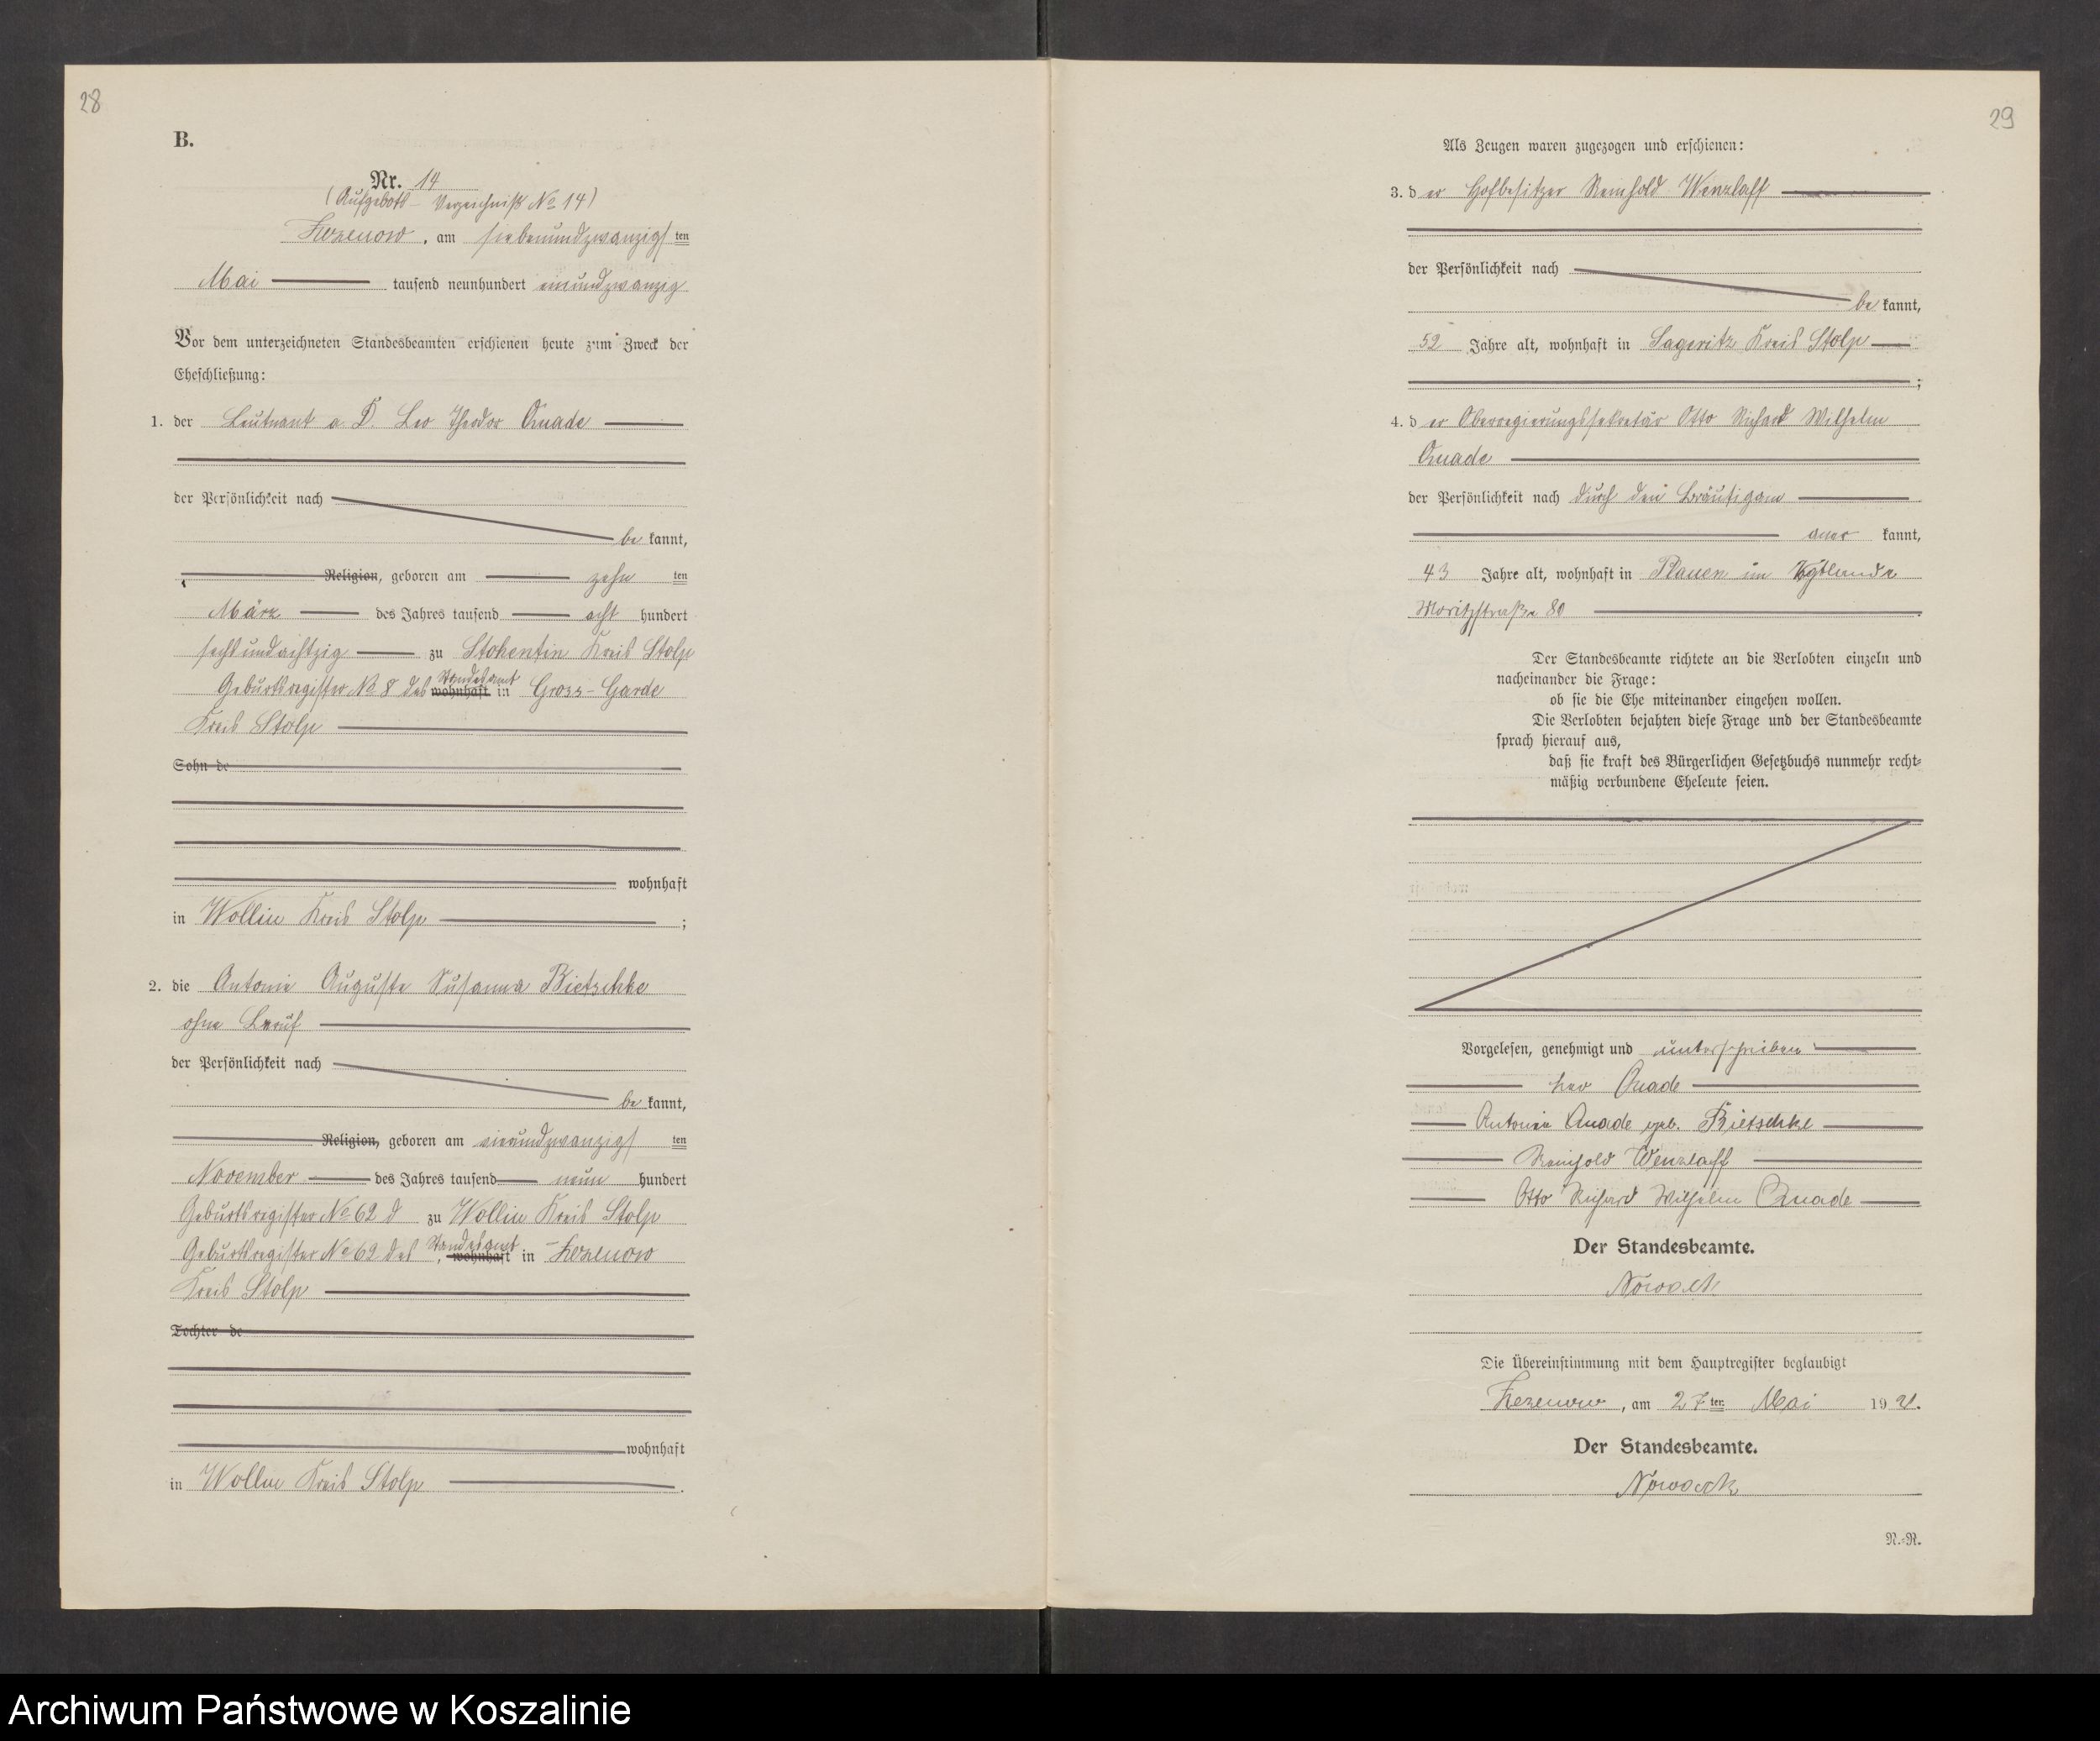 28
B.
Nr. 14
(Aufgebots-Verzeichniß No 14)
Zezenow, am siebenundzwanzigsten
Mai tausend neunhundert einundzwanzig
Vor dem unterzeichneten Standesbeamten erschienen heute zum Zweck der
Eheschließung:
1. der Leutnant a. D. Leo Theodor Quade
der Persönlichkeit nach
be kannt,
Religion, geboren am zehn ten
März des Jahres tausend acht hundert
sechsundachtzig zu Stohentin Kreis Stolp
Geburtsregister No 8 des Standesamt wohnhaft in Gross-Garde
Kreis Stolp
Sohn de
wohnhaft
in Wollin Kreis Stolp ;
2. die Antonie Auguste Susanna Bietschke
ohne Beruf
der Persönlichkeit nach
be kannt,
Religion, geboren am vierundzwanzigsten
November des Jahres tausend neun hundert
Geburtsregister No 62 d zu Wollin Kreis Stolp
Geburtsregister No 62 des Standesamt, wohnhaft in Zezenow
Kreis Stolp
Tochter de
wohnhaft
in Wollin Kreis Stolp .
29
Als Zeugen waren zugezogen und erschienen:
3. der Hofbesitzer Reinhold Wenzlaff
der Persönlichkeit nach
be kannt,
52 Jahre alt, wohnhaft in Sageritz Kreis Stolp
;
4. der Oberregierungssekretär Otto Richard Wilhelm
Quade
der Persönlichkeit nach durch den Bräutigam
aner kannt,
43 Jahre alt, wohnhaft in Plauen im Vogtlande
Moritzstraße 80 .
Der Standesbeamte richtete an die Verlobten einzeln und
nacheinander die Frage:
ob sie die Ehe miteinander eingehen wollen.
Die Verlobten bejahten diese Frage und der Standesbeamte
sprach hierauf aus,
daß sie kraft des Bürgerlichen Gesetzbuchs nunmehr recht-
mäßig verbundene Eheleute seien.
Vorgelesen, genehmigt und unterschrieben
Leo Quade
Antonie Quade geb. Bietschke
Reinhold Wenzlaff
Otto Richard Wilhelm Quade
Der Standesbeamte.
Nowack
Die Übereinstimmung mit dem Hauptregister beglaubigt
Zezenow, am 27ten Mai 1921.
Der Standesbeamte.
Nowack
N.-R.
Archiwum Państwowe w Koszalinie